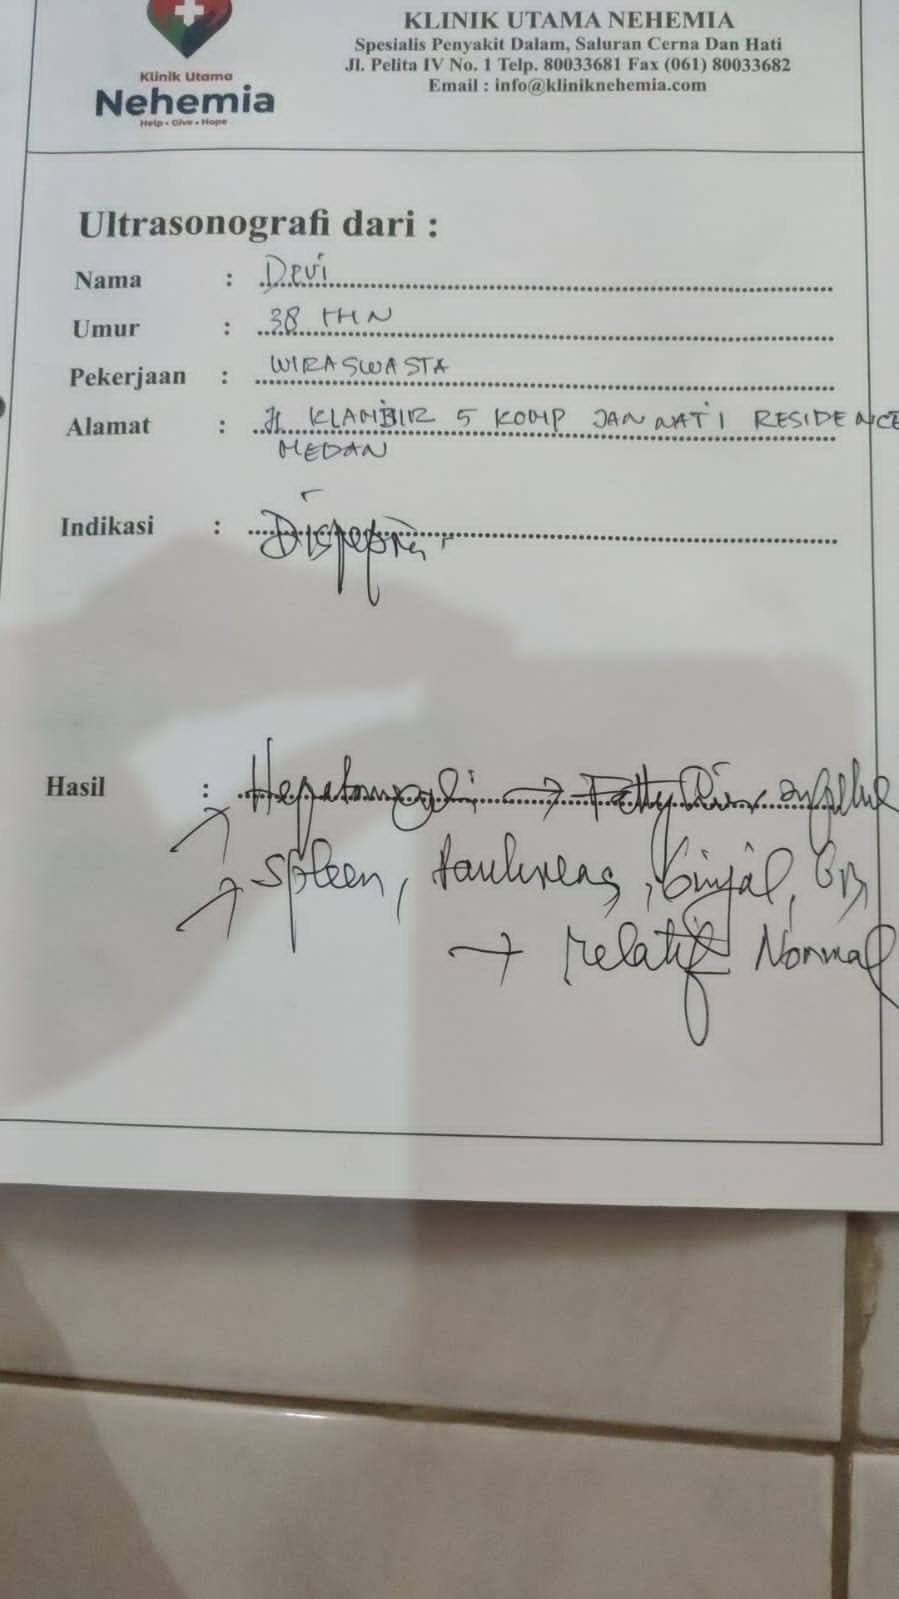 KLINIK UTAMA NEHEMIA
Spesialis Penyakit Dalam, Saluran Cerna Dan Hati
Jl. Pelita IV No. 1 Telp. 80033681 Fax (061) 80033682
Email : info@kliniknehemia.com
Klinik Utama
Nehemia
Help • Give • Hope
Ultrasonografi dari :
Nama : Devi
Umur : 38 THN
Pekerjaan : WIRASWASTA
Alamat : Jl KLAMBIR 5 KOMP JANNATI RESIDENCE
MEDAN
Indikasi : Dispepsia
Hasil : Hepatomegali → Fatty Liver
Spleen, Pankreas, Ginjal, GB,
→ relatif Normal